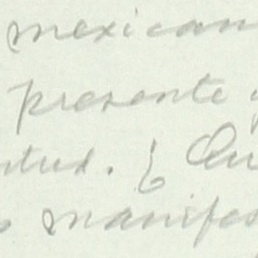 mexican
presente y
ntud. ¿ Qu
s manifes